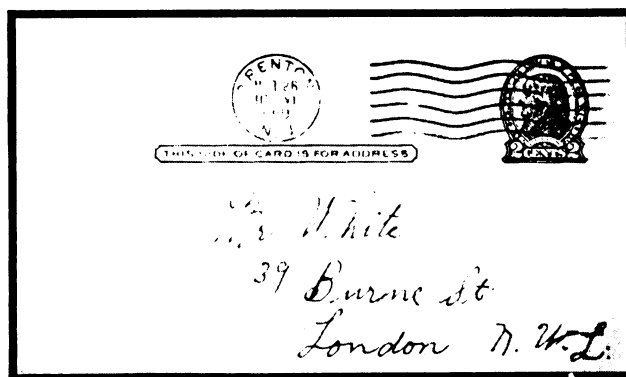 TRENTON
OCT 26
N. J.
THIS SIDE OF CARD IS FOR ADDRESS
2 CENTS 2
Mr White
39 Burne St
London N. W.